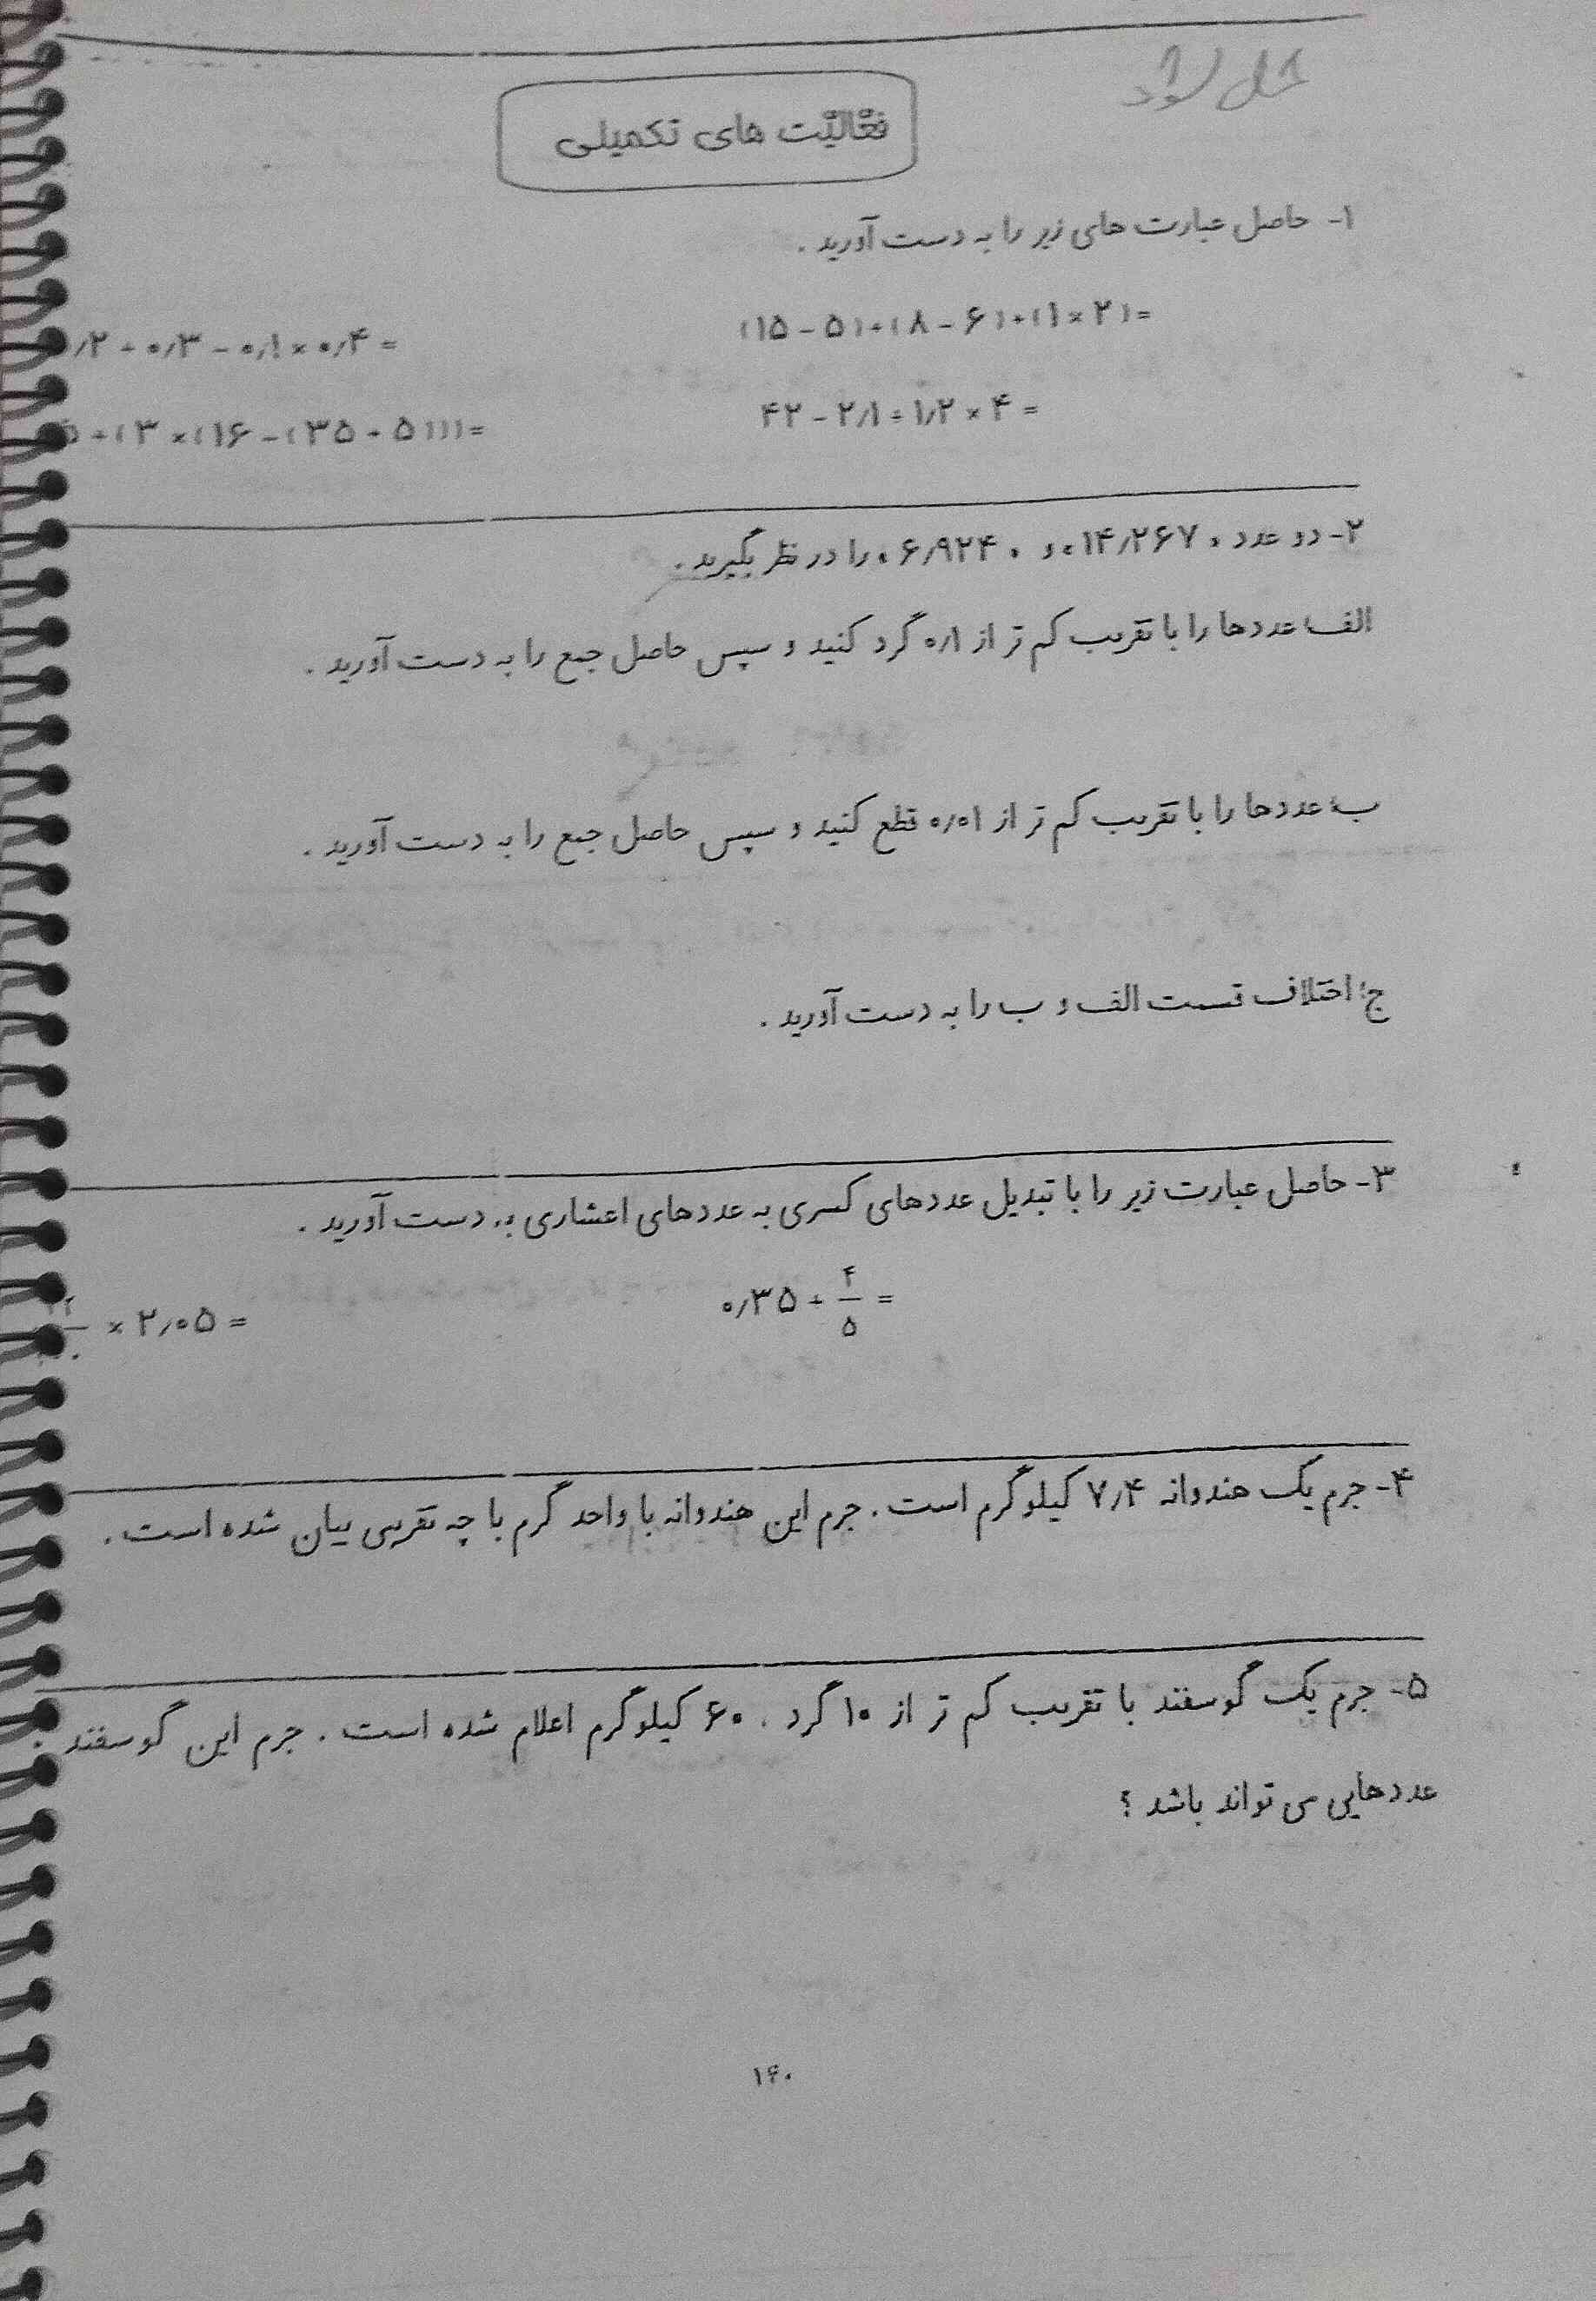 حل شود
فعّالیّت های تکمیلی
۱- حاصل عبارت های زیر را به دست آورید .
(۱۵ - ۵) ÷ (۸ - ۶) + (۱ × ۲) =
۰٫۳ - ۰٫۱ × ۰٫۴ =
۴۲ - ۲٫۱ ÷ ۱٫۲ × ۴ =
(۳ × (۱۶ - (۳۵ ÷ ۵))) =
۲- دو عدد «۱۴٫۲۶۷» و «۶٫۹۲۴» را در نظر بگیرید .
الف) عددها را با تقریب کم تر از ۰٫۱ گرد کنید و سپس حاصل جمع را به دست آورید .
ب) عددها را با تقریب کم تر از ۰٫۰۱ قطع کنید و سپس حاصل جمع را به دست آورید .
ج) اختلاف قسمت الف و ب را به دست آورید .
۳- حاصل عبارت زیر را با تبدیل عددهای کسری به عددهای اعشاری به دست آورید .
۰٫۳۵ ÷ ۴/۵ =
× ۲٫۰۵ =
۴- جرم یک هندوانه ۷٫۴ کیلوگرم است . جرم این هندوانه با واحد گرم با چه تقریبی بیان شده است .
۵- جرم یک گوسفند با تقریب کم تر از ۱۰ گرد ، ۶۰ کیلوگرم اعلام شده است . جرم این گوسفند
عددهایی می تواند باشد ؟
۱۴۰